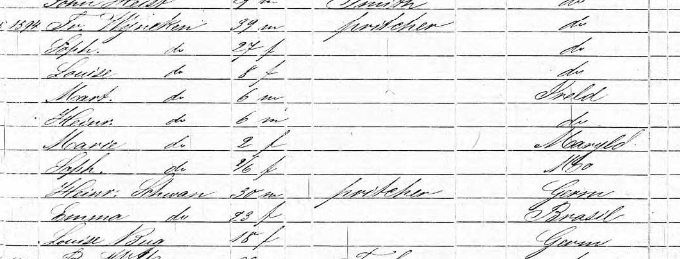 John 9 m Smith do
1594 Fr. Wyneken 39 m pritcher do
Soph. do 27 f do
Louise do 8 f do
Mart. do 6 m Ireld
Heinr. do 6 m do
Marie do 2 f Maryld
Soph. do 2/6 f Mo
Heinr. Schwan 30 m pritcher Germ
Emma do 23 f Brasil
Louise 18 f Germ